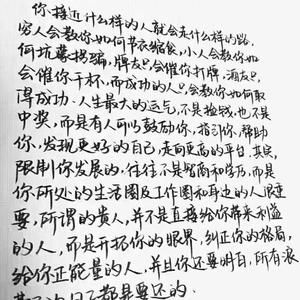 你接近什么样的人就会走什么样的路,
穷人会教你如何节衣缩食,小人会教你如
何坑蒙拐骗,牌友只会催你打牌,酒友只
会催你干杯,而成功的人只会教你如何取
得成功.人生最大的运气,不是捡钱,也不是
中奖,而是有人可以鼓励你,指引你,帮助
你,发现更好的自己,走向更高的平台.其实,
限制你发展的,往往不是智商和学历,而是
你所处的生活圈及工作圈和身边的人很重
要,所谓的贵人,并不是直接给你带来利益
的人,而是开拓你的眼界,纠正你的格局,
给你正能量的人,并且你还要明白,所有浪
都是要还的.